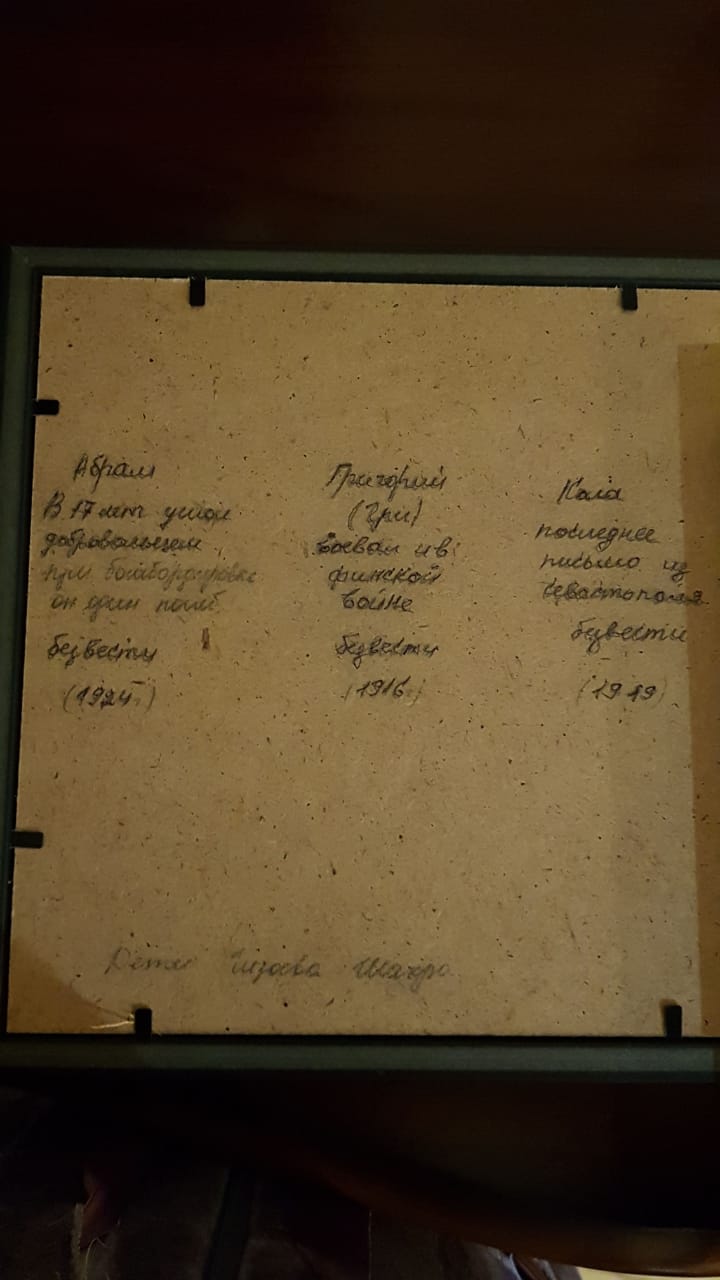 Абрам
В 17 лет ушол
добровольцем,
при бомбордировке
он один погиб.
безвести
(1924г.)
Григорий
(Гри)
воевал и в
финской
войне
безвести
(1916г.)
Коля
последнее
письмо из
Севастополя
безвести
(1919)
Дети